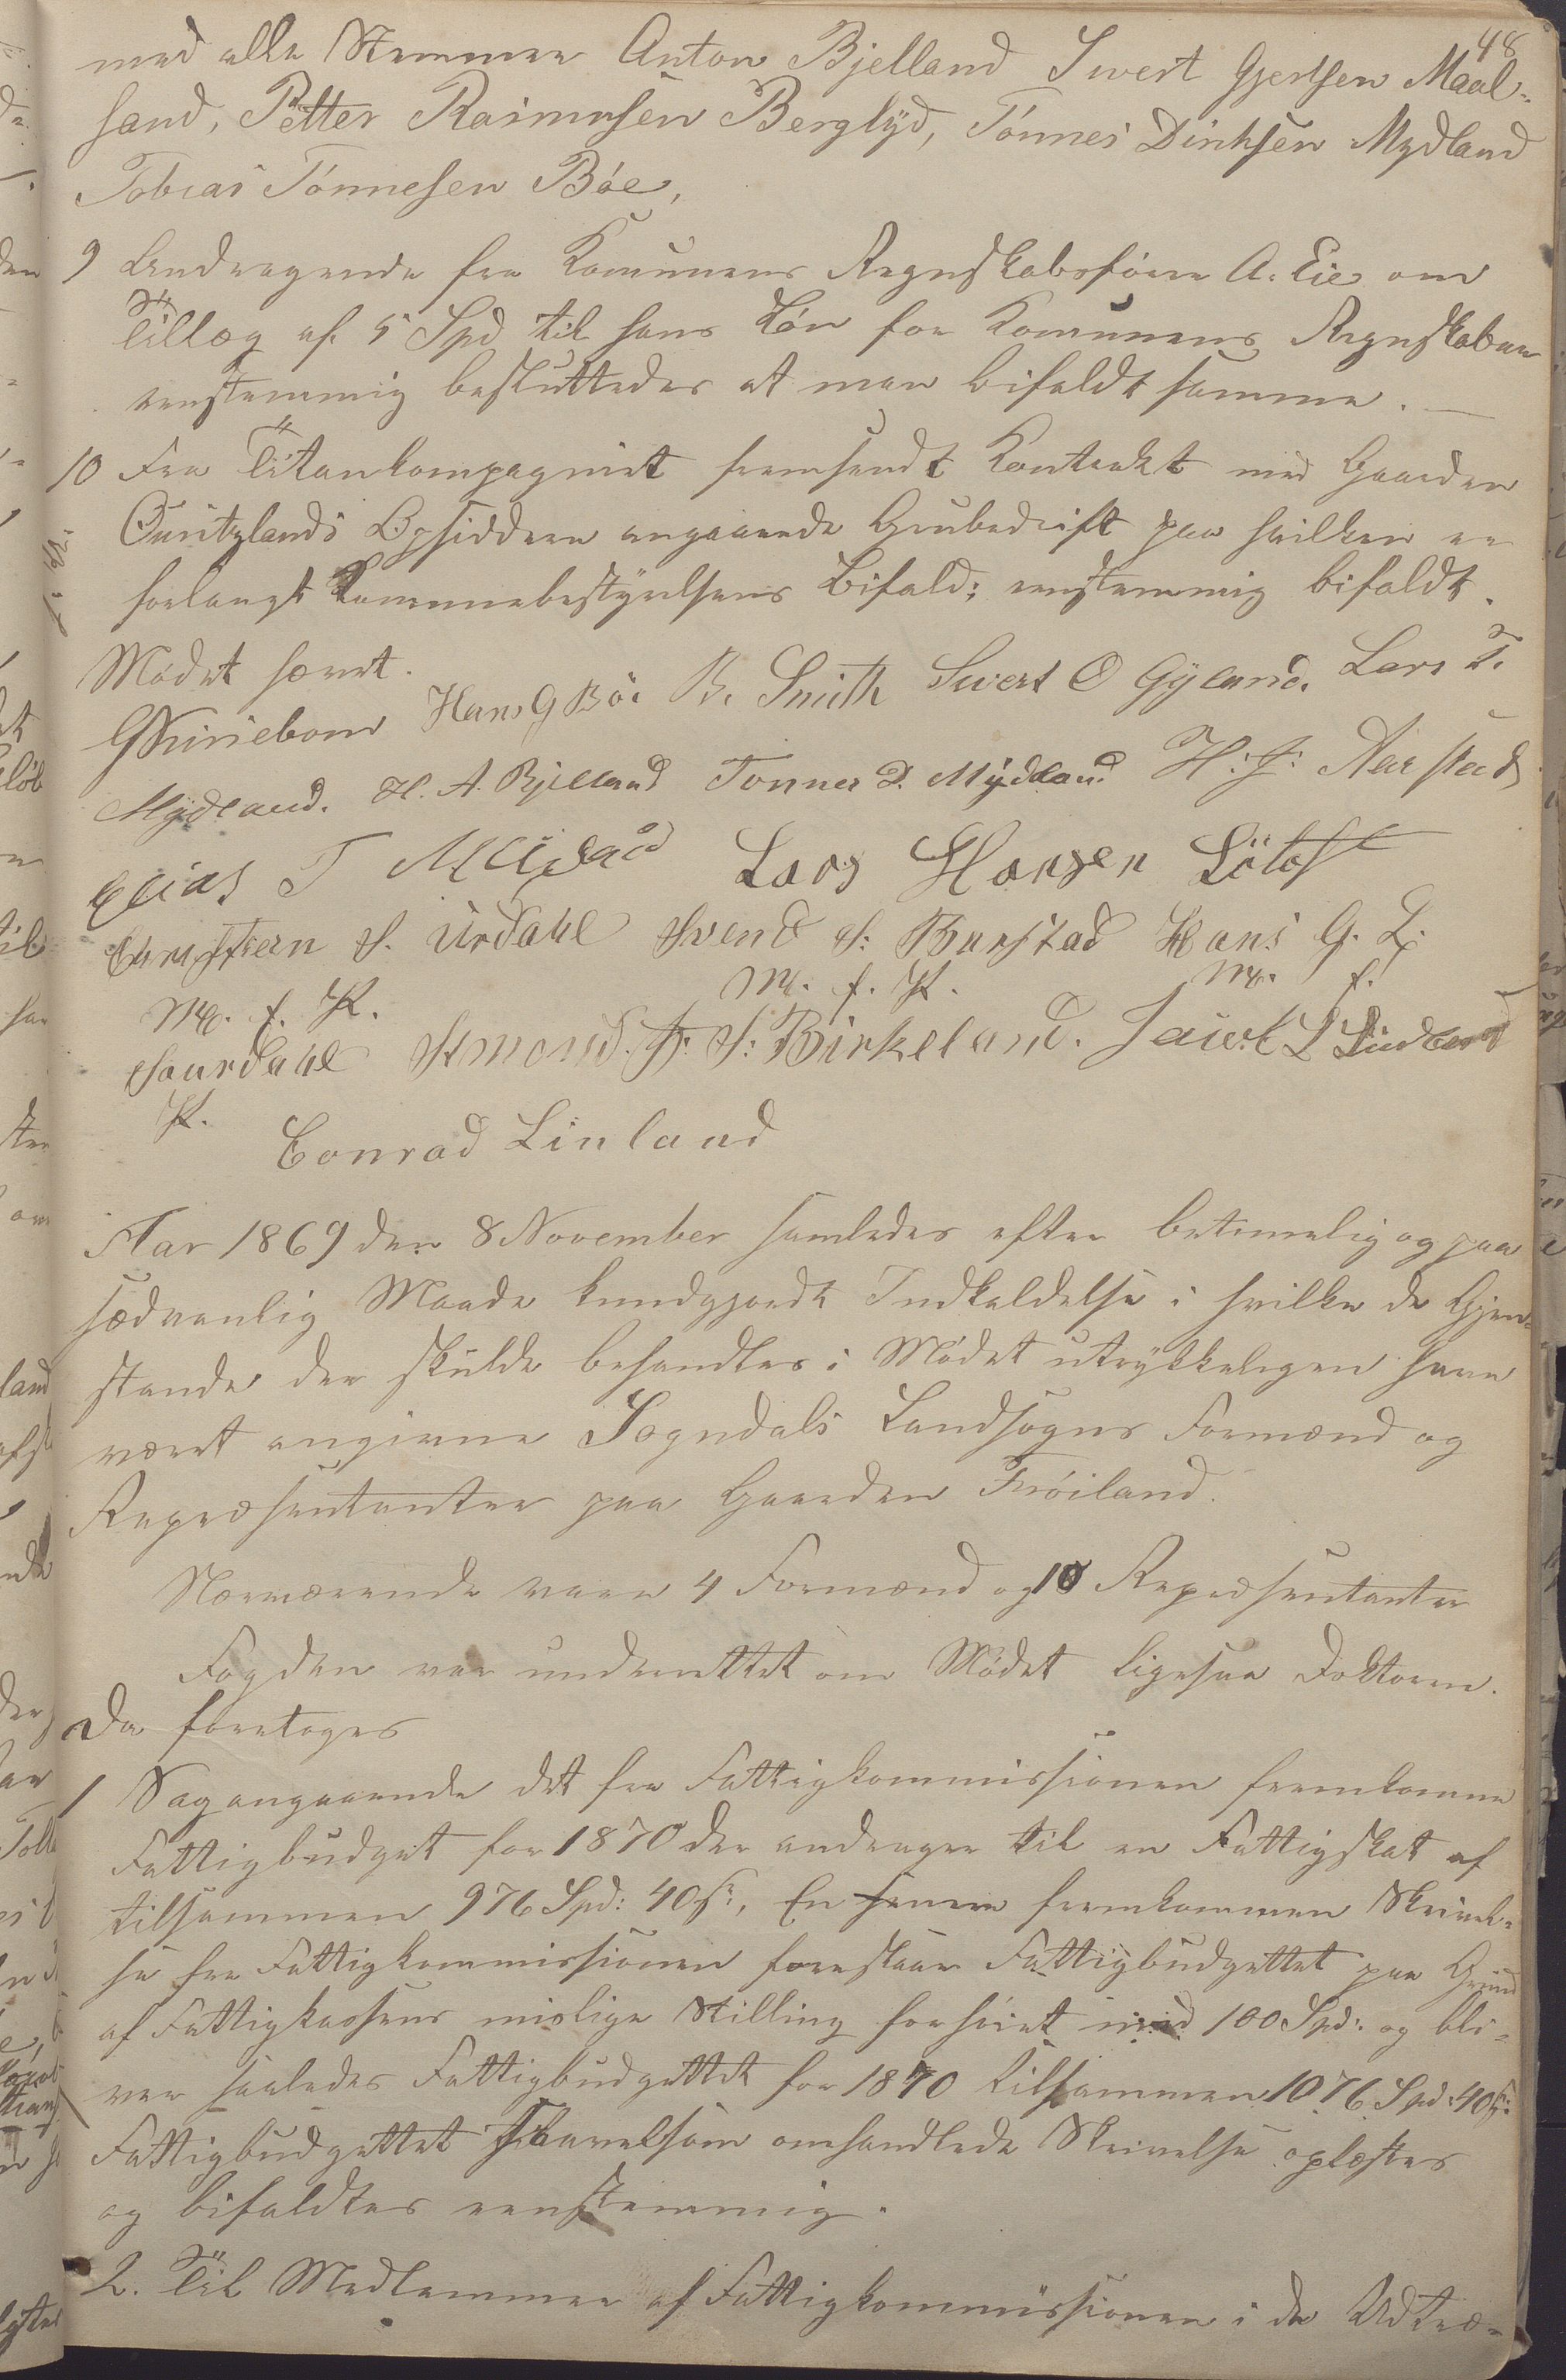 48
med alle Stemmer Anton Bjelland Sivert Gjertsen Maal-
sand, Petter Rasmusen Berglyd, Tönnes Dirksen Mydland
Tobias Tönnesen Böe,
9 Andragende fra Komunens Regnskabsförer A. Eie om
Tillæg af 5 Spd til hans Lön for Komunens Regnskaber
eenstemmig besluttedes at man bifaldt samme.
10 Fra Titankompagniet fremsendt Kontrakt med Gaarden
Qvitzlands Opsiddere angaaende Grubedrift paa hvilken er
forlangt Kommunebestyrelsens Bifald; eenstemmig bifaldt.
Mödet hævet.
Hans G Bö. B. Smith Sivert O Gyland. Lars T.
Mydland. H. A. Bjelland Tönnes D. Mydland H: J: Aarstad
Elias T Mydland Lars Hansen Lötoft
Christian S. Urdahl Svend S: Barstad Hans G. L.
M. f. P. M. f. P. M. f.
Hourdahl Amond S: Birkeland. Sivert L Linland
P. Conrad Linland
Aar 1869 den 8 November samledes efter betimelig og paa
sædvanlig Maade kundgjordt Indkaldelse i hvilke de Gjen-
stande der skulde behandles i Mödet utrykkeligen have
været angivne Sogndals Landsogns Formænd og
Repræsentanter paa Gaarden Fröiland.
Nærværende vare 4 Formænd og 10 Repræsentanter
Fogden var underrettet om Mödet ligesaa Doktoren.
Da foretoges
1 Sag angaaende det fra Fattigkommissionen fremkomne
Fattigbudget for 1870 der andrager til en Fattigskat af
tilsammen 976 Spd: 40 s., En senere fremkommen Skrivel-
se fra Fattigkommissionen foreslaar Fattigbudgettet paa Grund
af Fattigkassens mislige Stilling forhöiet med 100 Spd: og bli-
ver saaledes Fattigbudgettet for 1870 tilsammen 1076 Spd: 40 s:
Fattigbudgettet saavelsom omhandlede Skrivelse oplæstes
og bifaldtes eenstemmig.
2. Til Medlemmer af Fattigkommissionen i de Udtræ-